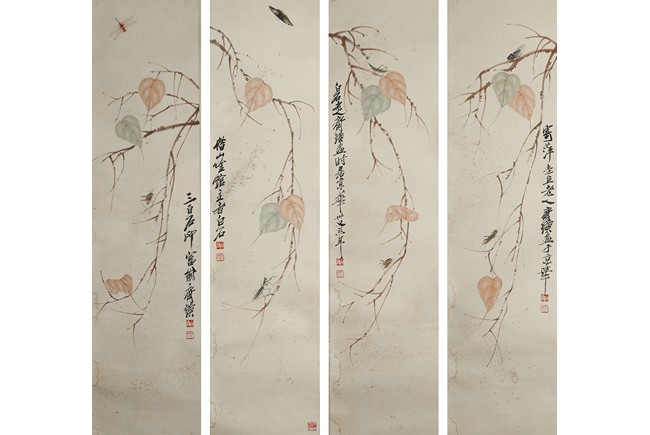 三百石印富翁齊璜
借山吟館主者白石
白石老人齊璜畫時居京華
寄萍堂老人齊璜畫于京華